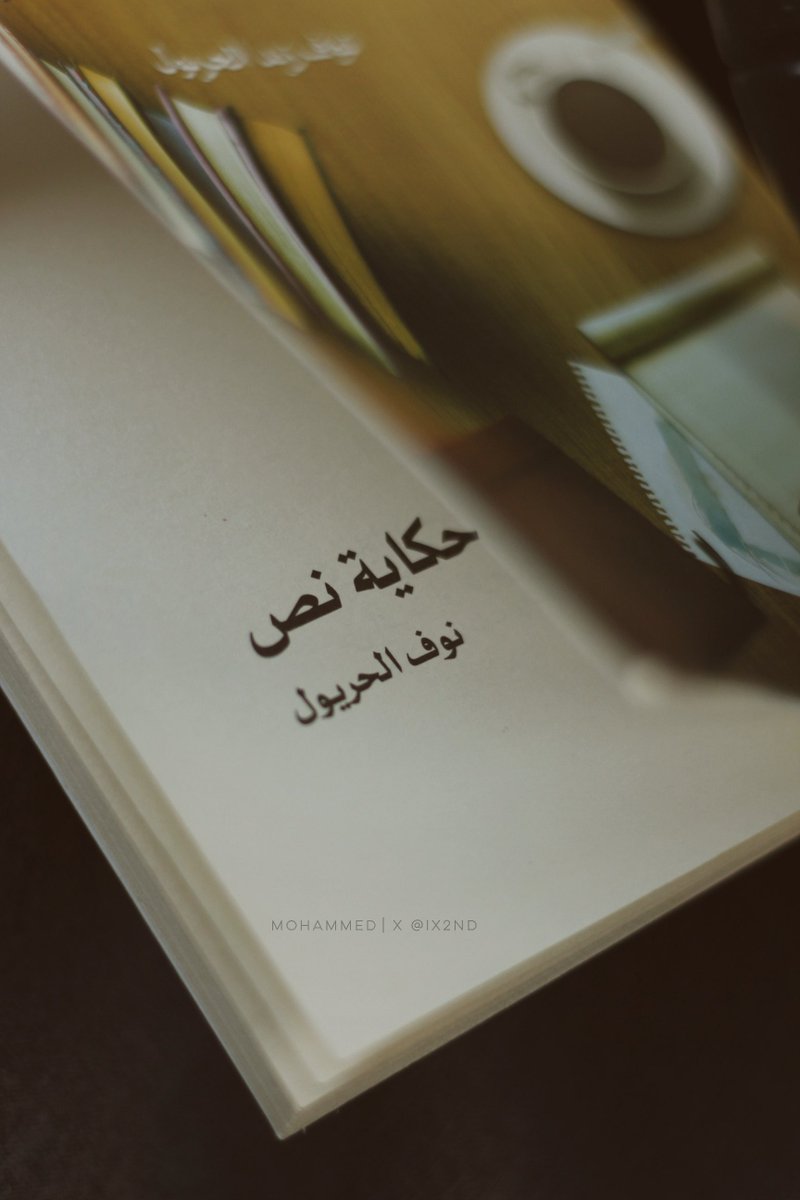 حكاية نص
نوف الحريول
MOHAMMED | X @IX2ND